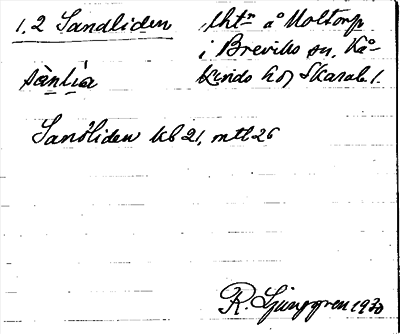 1.2 Sandliden lht r å Moltorp
i Breviks sn. Kå-
sànlía kinds hd, Skarab. l.
Sandliden kb 21, mtl 26
R. Ljunggren 1930